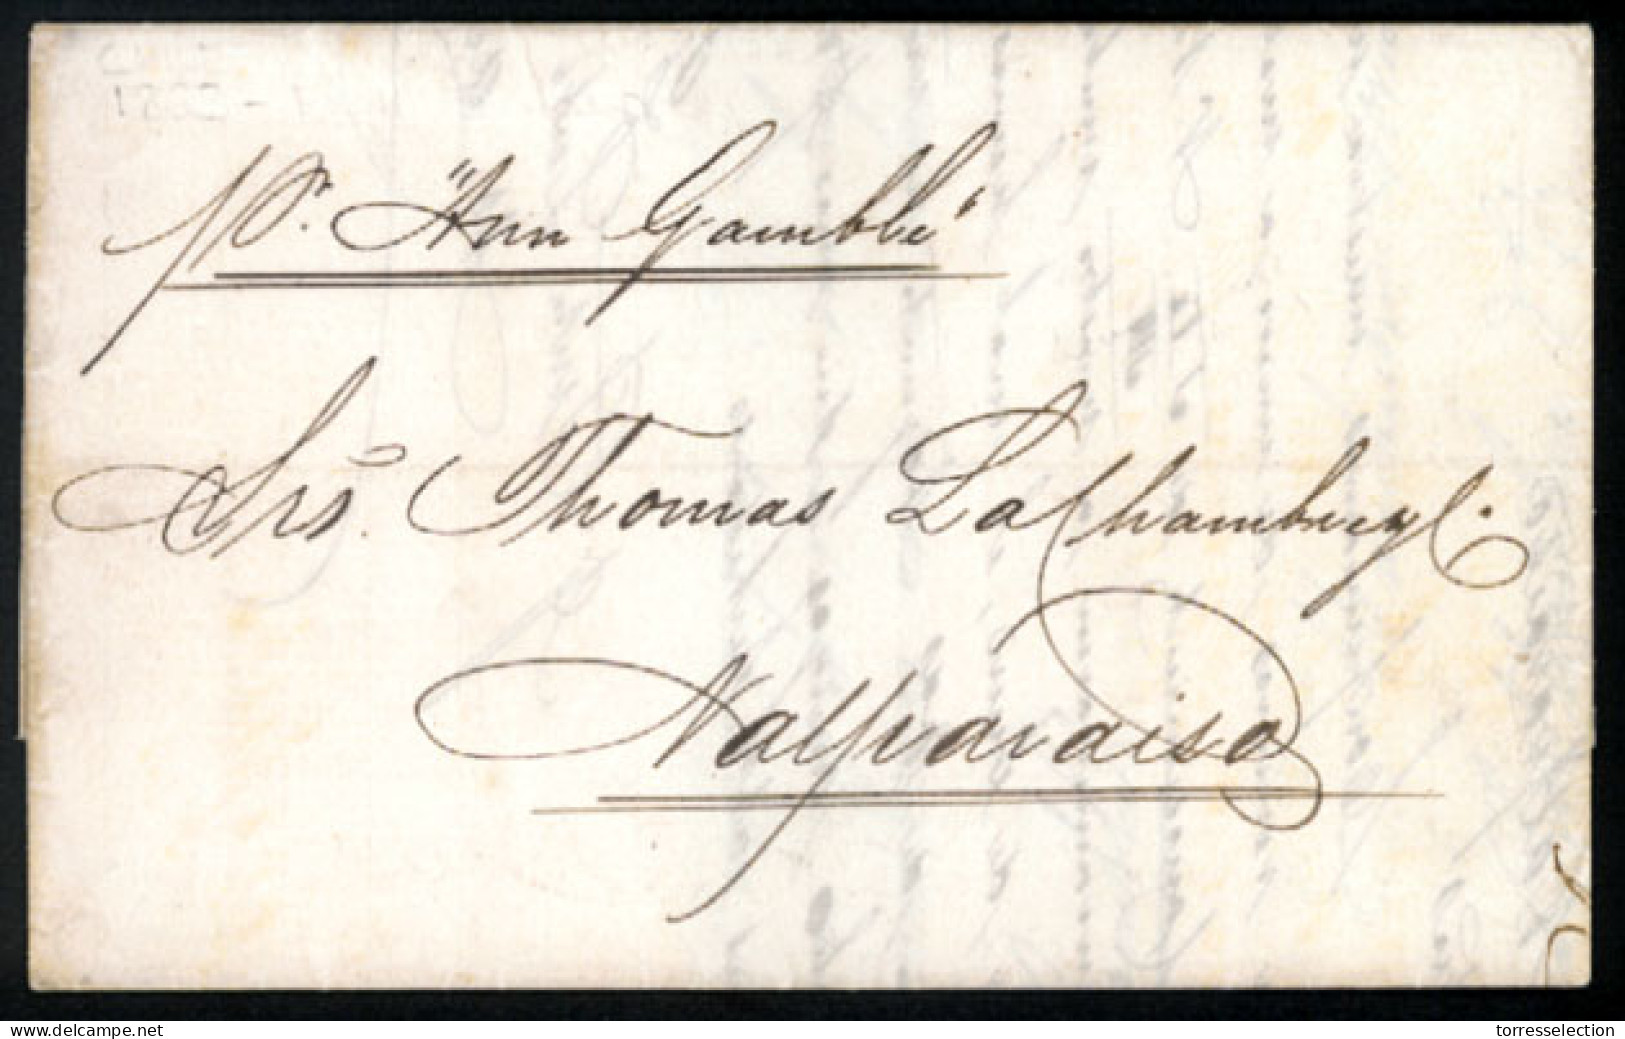 pr. "Ann Gamble"
Srs. Thomas LaChambre y C.
Valparaiso
www.delcampe.net
torresselection